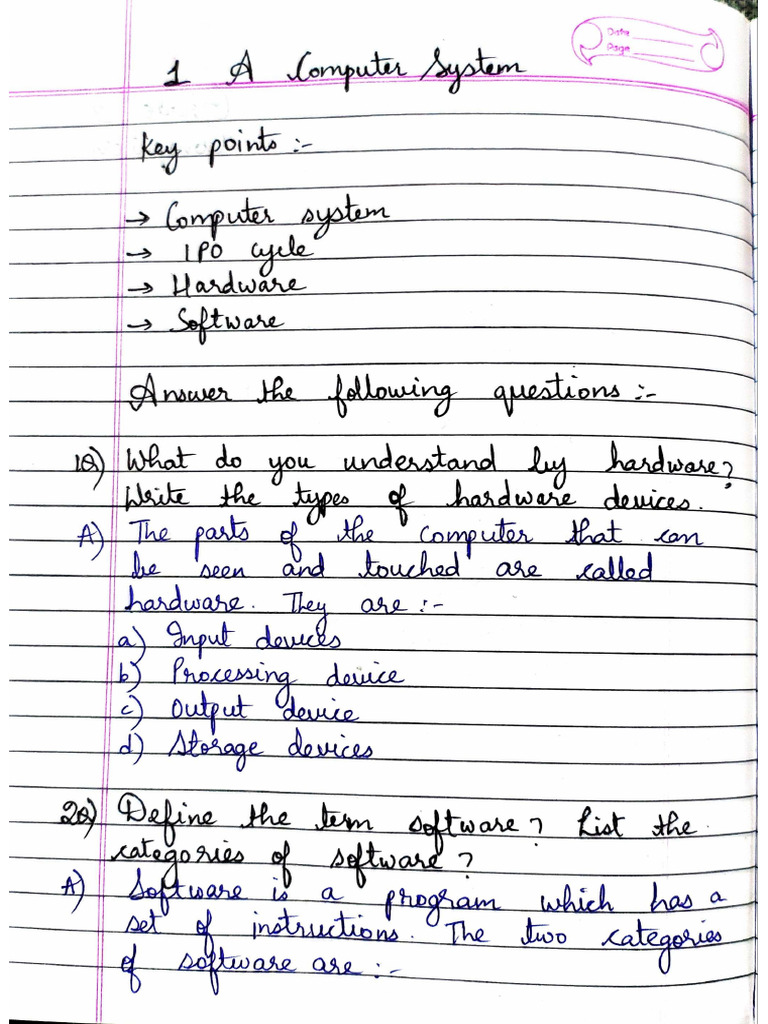 Date
Page
1 A Computer System
Key points :-
→ Computer system
→ IPO cycle
→ Hardware
→ Software
Answer the following questions :-
1Q) What do you understand by hardware?
Write the types of hardware devices.
A) The parts of the computer that can
be seen and touched are called
hardware. They are :-
a) Input devices
b) Processing device
c) Output device
d) Storage devices
2Q) Define the term software? List the
categories of software?
A) Software is a program which has a
set of instructions. The two categories
of software are :-